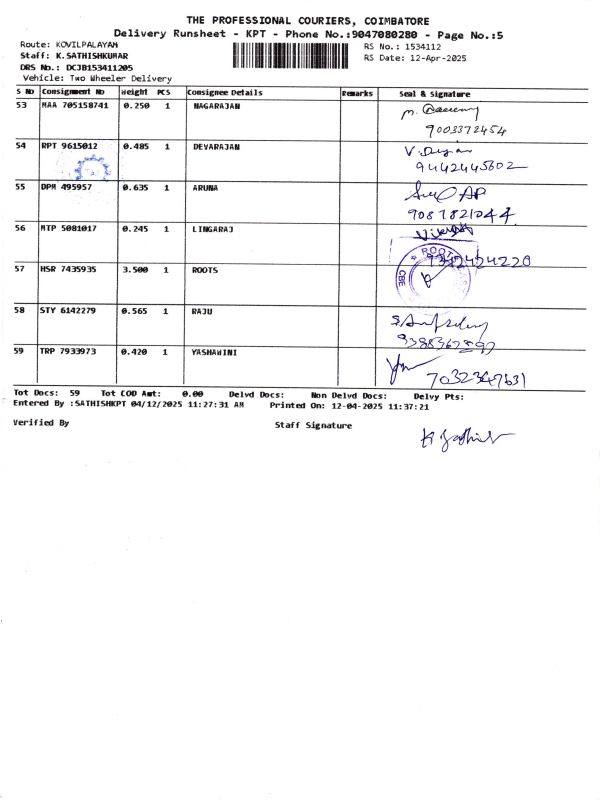 THE PROFESSIONAL COURIERS, COIMBATORE
Delivery Runsheet - KPT - Phone No.:9047080280 - Page No.:5
Route: KOVILPALAYAM
RS No.: 1534112
Staff: K.SATHISHKUMAR
RS Date: 12-Apr-2025
DRS No.: DCJB153411205
Vehicle: Two Wheeler Delivery
S No Consignment No Weight PCS Consignee Details Remarks Seal & Signature
53 MAA 705158741 0.250 1 NAGARAJAN
9003372454
54 RPT 9615012 0.485 1 DEVARAJAN
9442445602
55 DPM 495957 0.635 1 ARUNA
9087821044
56 MTP 5081017 0.245 1 LINGARAJ
57 HSR 7435935 3.500 1 ROOTS
ROOTS
CBE
58 STY 6142279 0.565 1 RAJU
59 TRP 7933973 0.420 1 YASHAWINI
Tot Docs: 59 Tot COD Amt: 0.00 Delvd Docs: Non Delvd Docs: Delvy Pts:
Entered By :SATHISHKPT 04/12/2025 11:27:31 AM Printed On: 12-04-2025 11:37:21
Verified By Staff Signature